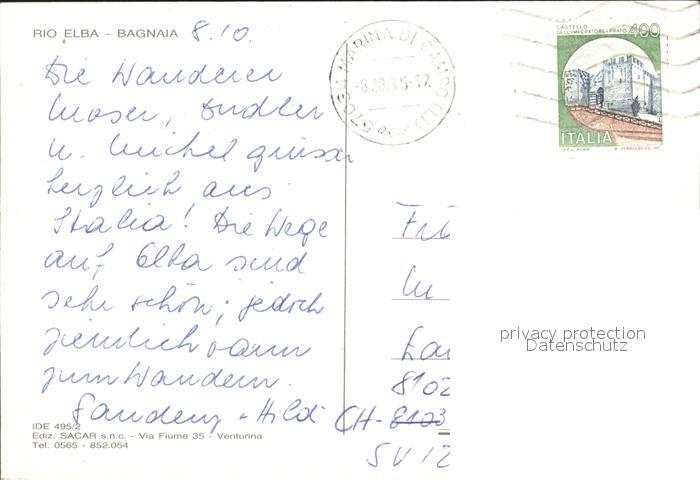 RIO ELBA - BAGNAIA 8.10.
Die Wanderer
Moser,
u. Michel grüssen
herzlich aus
Italia! Die Wege
auf Elba sind
sehr schön; jedoch
ziemlich warm
zum Wandern.
Gaudenz + Hildi
IDE 495/2
Ediz. SACAR s.n.c. - Via Fiume 35 - Venturina
Tel. 0565 - 852.054
57034 MARINA DI CAMPO (LI)
-8.10.85-12
CASTELLO
DELL'IMPERATORE-PRATO
400
ITALIA
I.P.Z.S. ROMA
8102
CH-8103
privacy protection
Datenschutz